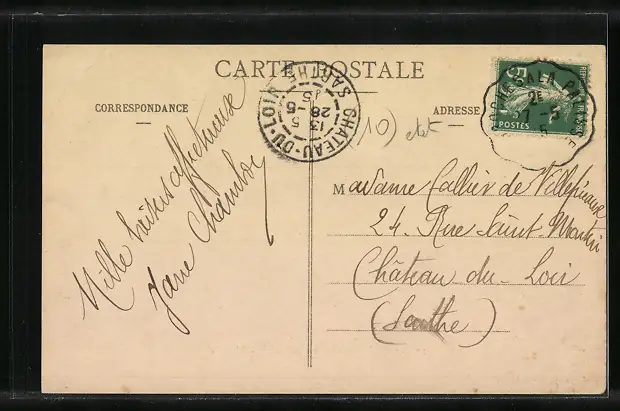 CARTE POSTALE
CORRESPONDANCE
ADRESSE
CHATEAU-DU-LOIR
SARTHE
13 - 5
28
5
POSTES
2E
1 - 5
(10)
Mille baisers affectueuse
Jane
Madame Callier de Villepreux
24. Rue Saint-Martin
Château du-Loir
(Sarthe)